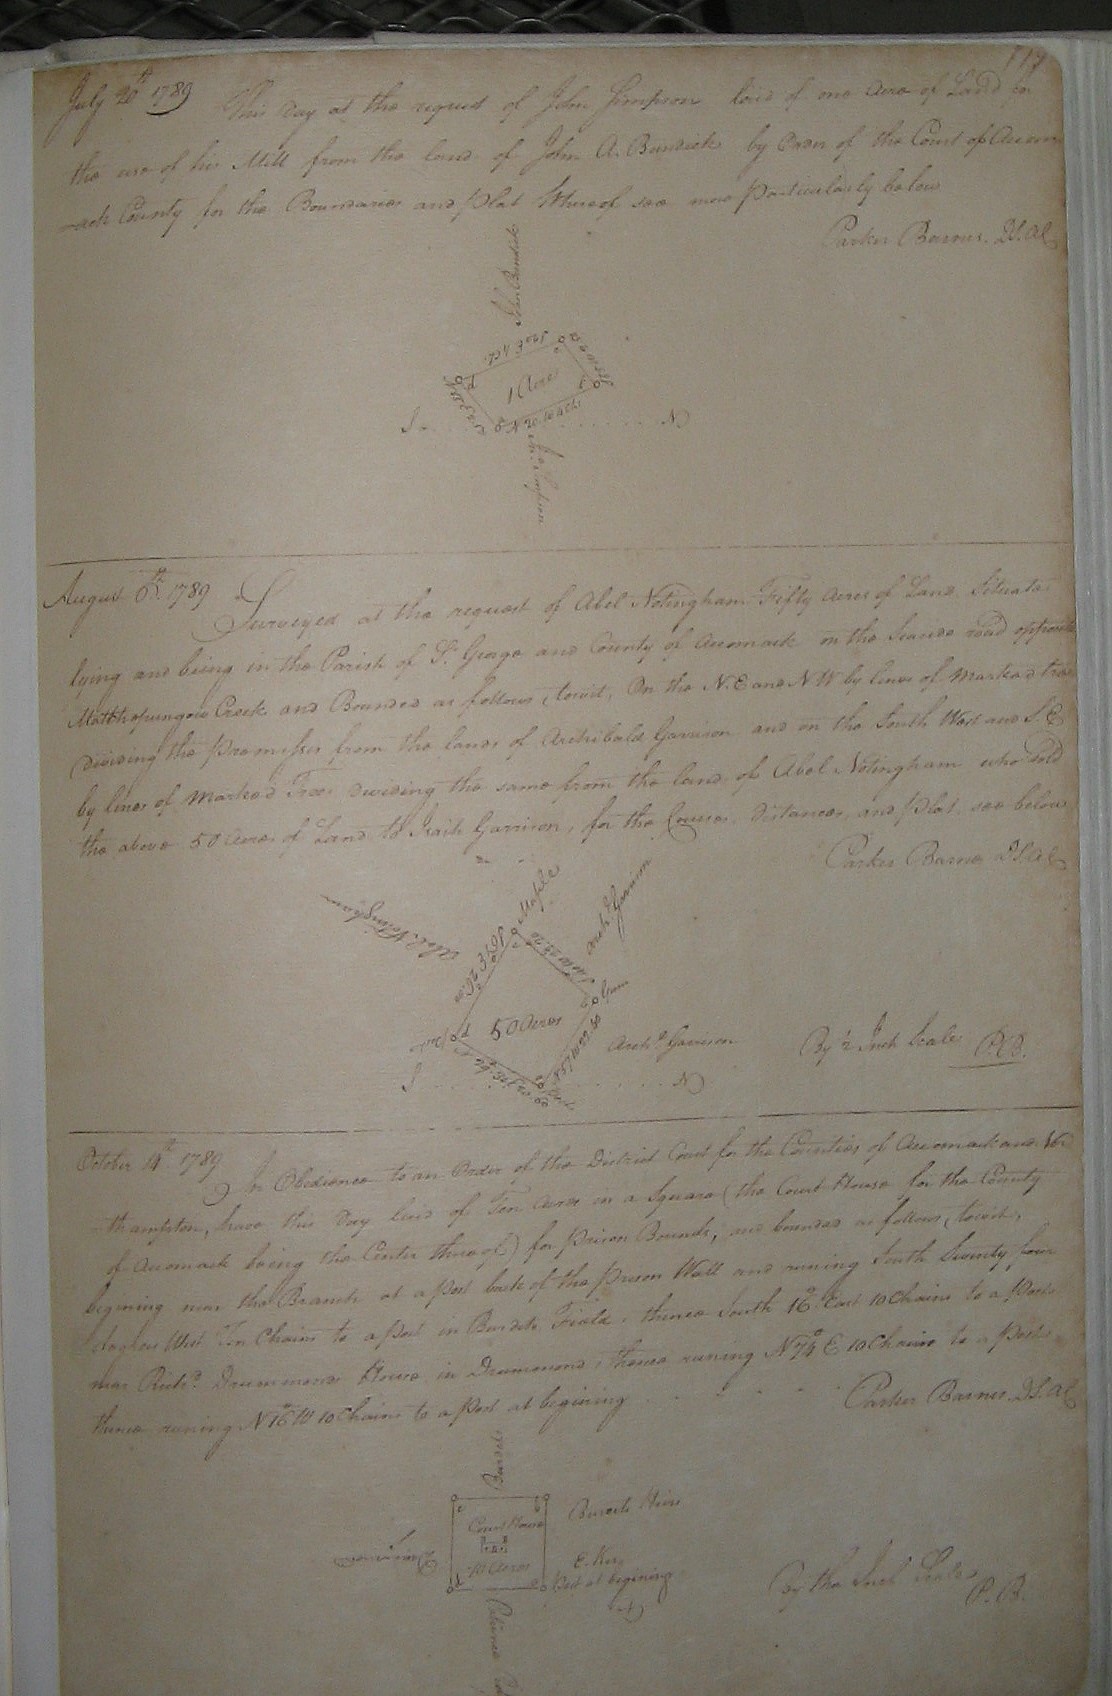 117
July 20th 1789 This Day at the request of John Simpson laid of one Acre of Land for
the use of his Mill from the land of John A. Bundick by Order of the Court of Accom
-ack County for the Boundaries and Plat thereof see more particularly below
Parker Barnes. D.S.AC
John Bundick
1 Acre
S N
Jno. Simpson
August 6th. 1789 Surveyed at the request of Abel Notingham Fifty Acres of Land Situate
lying and being in the Parish of St. George and County of Accomack on the Seaside road opposite
Matchopungow Creek and Bounded as follows, towit, On the N.E and N W by lines of Marked trees
Dividing the Premisses from the lands of Archibald Garrison and on the South West and S.E
by lines of Marked Trees Dividing the same from the land of Abel Notingham who sold
the above 50 Acres of Land to Garrison, for the Courses, Distances, and Plat, see below
Parker Barnes D.S.AC
Abel Notingham
Maple
Archd. Garrison
Gum
50 Acres
Archd. Garrison
S N
By ½ Inch Scale P.B.
October 14th 1789 In Obedience to an Order of the District Court for the Counties of Accomack and No
-thampton, have this Day laid of Ten Acres in a Square (the Court House for the County
of Accomack being the Center thereof) for Prison Bounds, and bounded as follows, towit,
begining near the Branch at a Post back of the Prison Wall and runing South Seventy four
degrees West Ten Chains to a Post in Burdets Field, thence South 16° East 10 Chains to a Post
near Richd. Drummonds House in Drummonds, thence runing N 74° E 10 Chains to a Post
thence runing N 16° W 10 Chains to a Post at begining
Parker Barnes D.S.AC
Burdets
Court House
10 Acres
Burdets
E. Ker
Post at begining
By the Inch Scale
P.B.